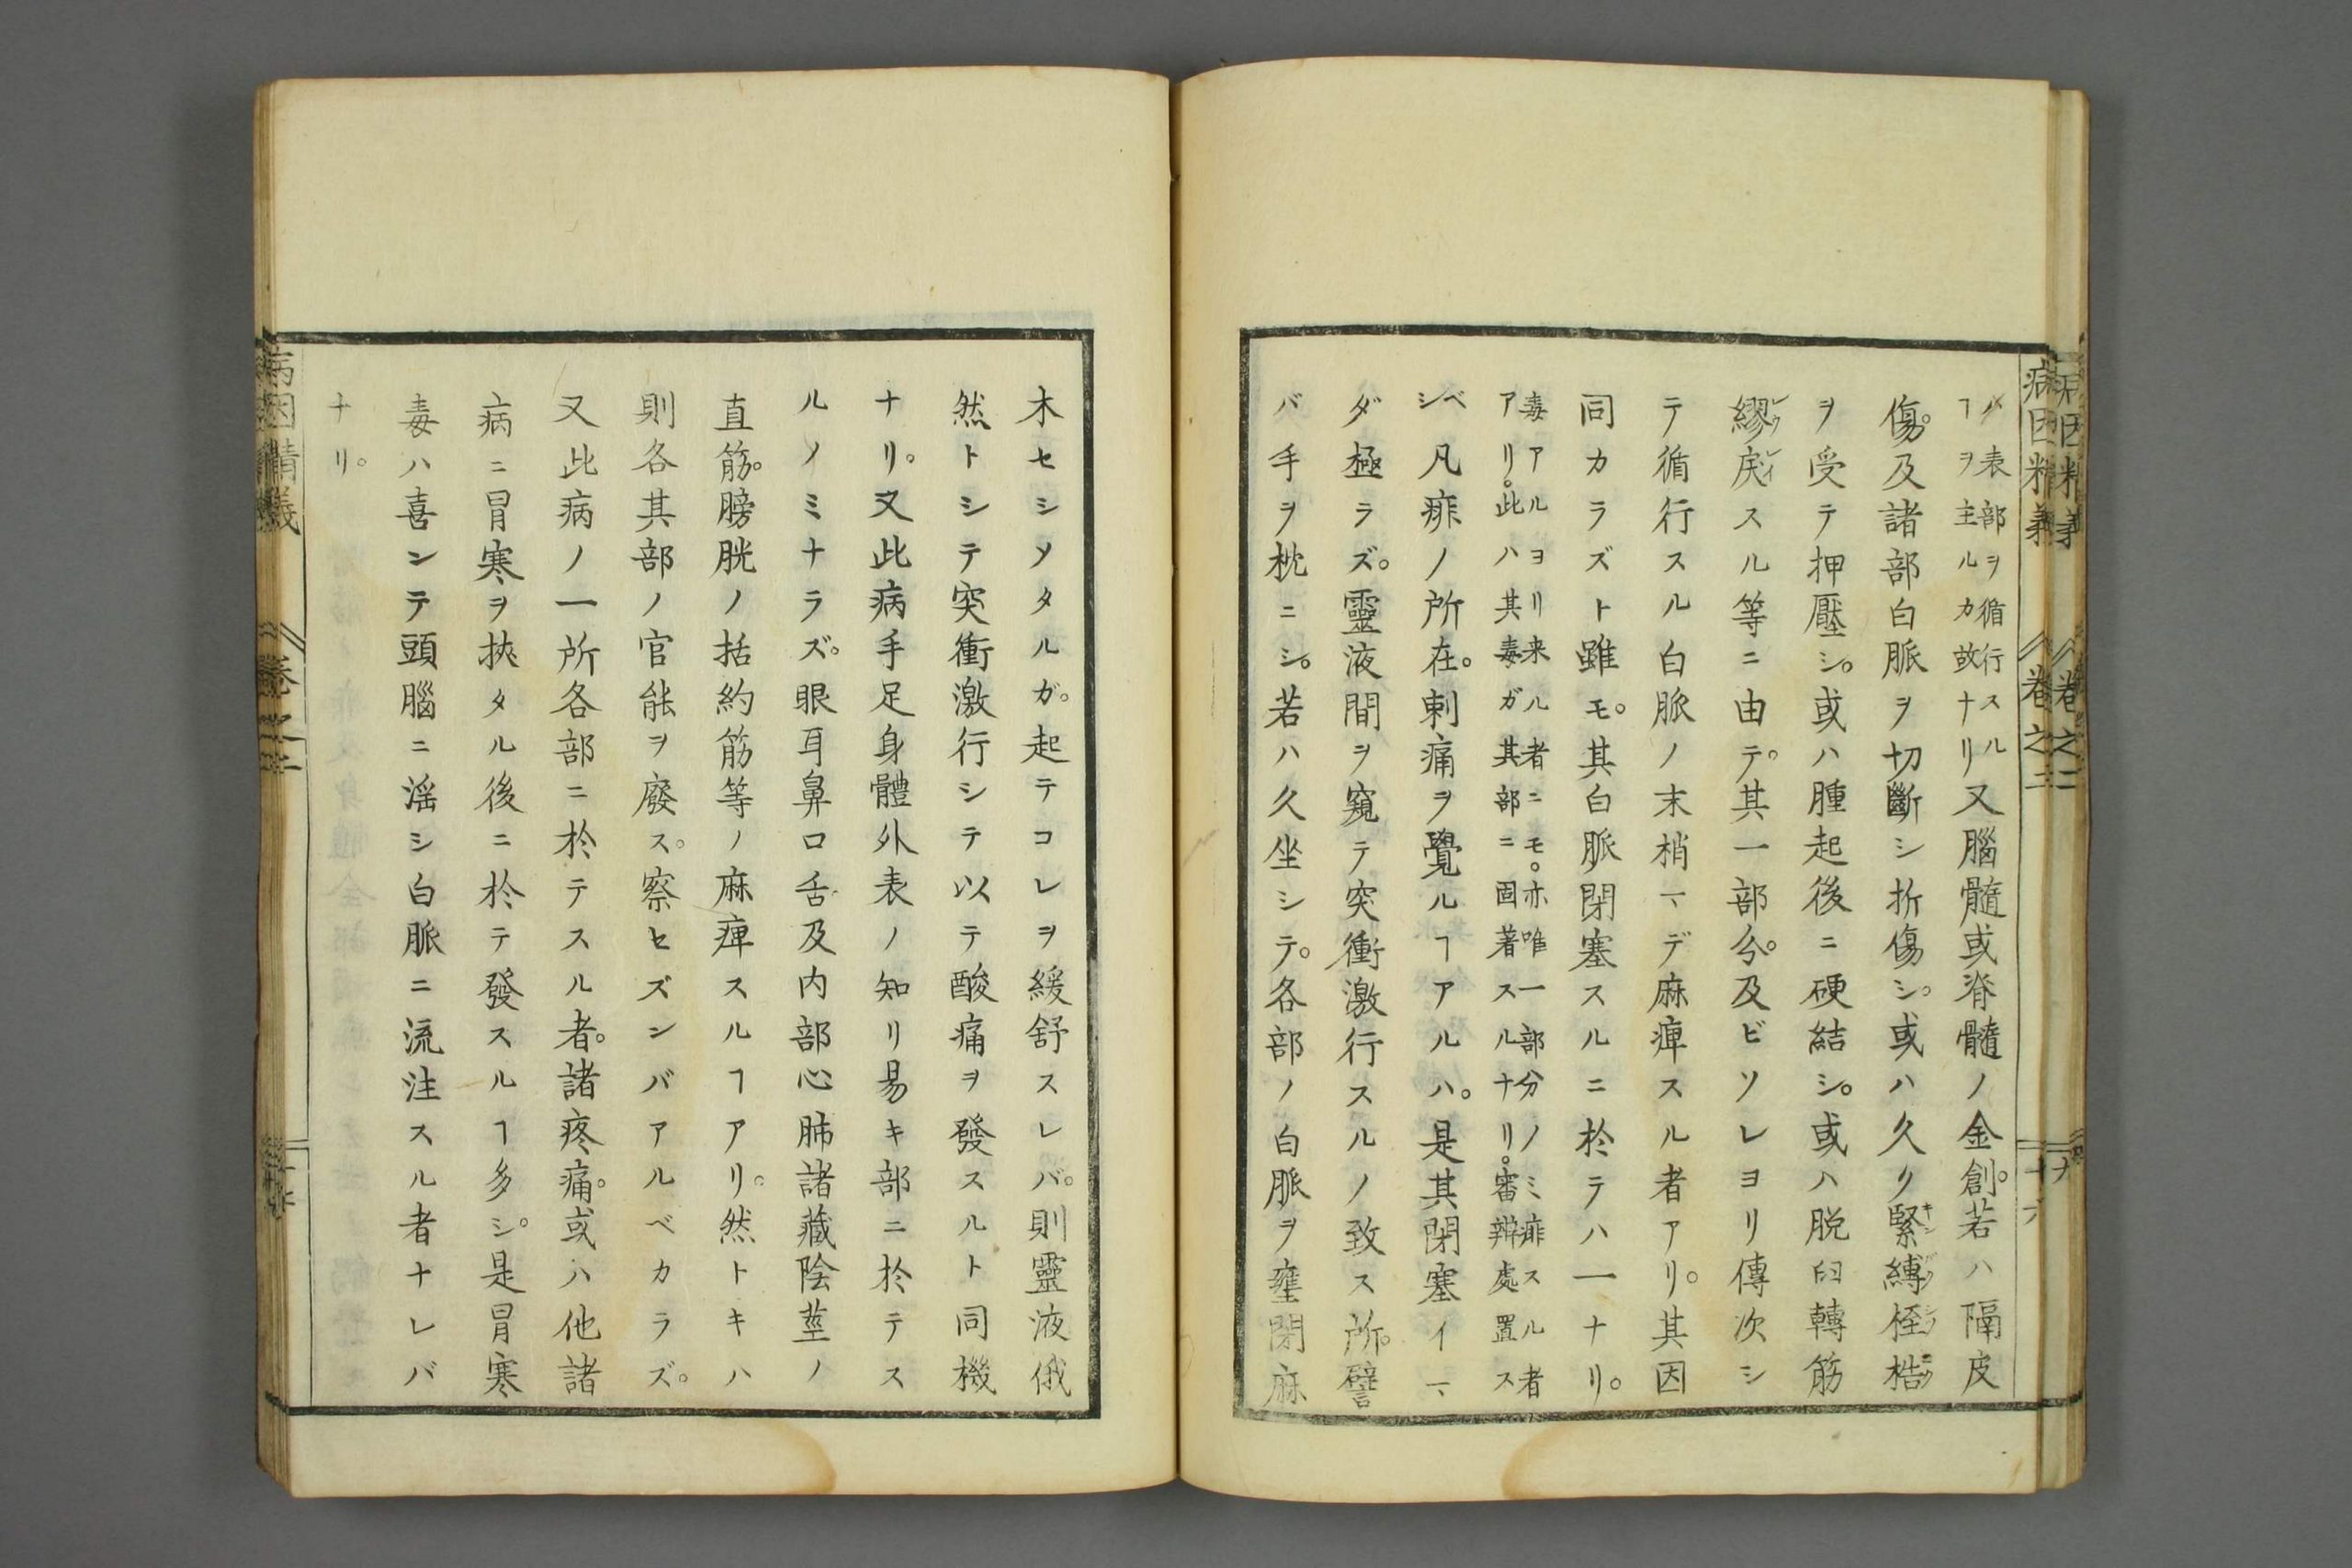 ハ表部ヲ循行スル
ヿヲ主ルカ故ナリ
又腦髓或脊髓ノ金創。若ハ隔皮
傷。及諸部白脈ヲ切斷シ折傷シ。或ハ久ク緊縛桎梏
ヲ受テ押壓シ。或ハ腫起後ニ硬結シ。或ハ脱臼轉筋
繆戾スル等ニ由テ。其一部分。及ビソレヨリ傳次シ
テ循行スル白脈ノ末梢マデ麻痺スル者アリ。其因
同カラズト雖モ。其白脈閉塞スルニ於テハ一ナリ。
毒アルヨリ来ル者ニモ。亦唯一部分ノミ痱スル者
アリ。此ハ其毒ガ其部ニ固著スルナリ。審辨處置ス
ベシ
凡痱ノ所在。刺痛ヲ覺ルヿアルハ。是其閉塞イマ
ダ極ラズ。靈液間ヲ窺テ突衝激行スルノ致ス所。譬
バ手ヲ枕ニシ。若ハ久坐シテ。各部ノ白脈ヲ壅閉麻
木セシメタルガ。起テコレヲ緩舒スレバ。則靈液俄
然トシテ突衝激行シテ以テ酸痛ヲ發スルト同機
ナリ。又此病手足身體外表ノ知リ易キ部ニ於テス
ルノミナラズ。眼耳鼻口舌及内部心肺諸藏陰莖ノ
直筋。膀胱ノ括約筋等ノ麻痺スルヿアリ。然トキハ
則各其部ノ官能ヲ廢ス。察セズンバアルベカラズ。
又此病ノ一所各部ニ於テスル者。諸疼痛。或ハ他諸
病ニ冒寒ヲ挾タル後ニ於テ發スルヿ多シ。是冒寒
毒ハ喜ンテ頭腦ニ滛シ白脈ニ流注スル者ナレバ
ナリ。
病因精義
卷之二
十六